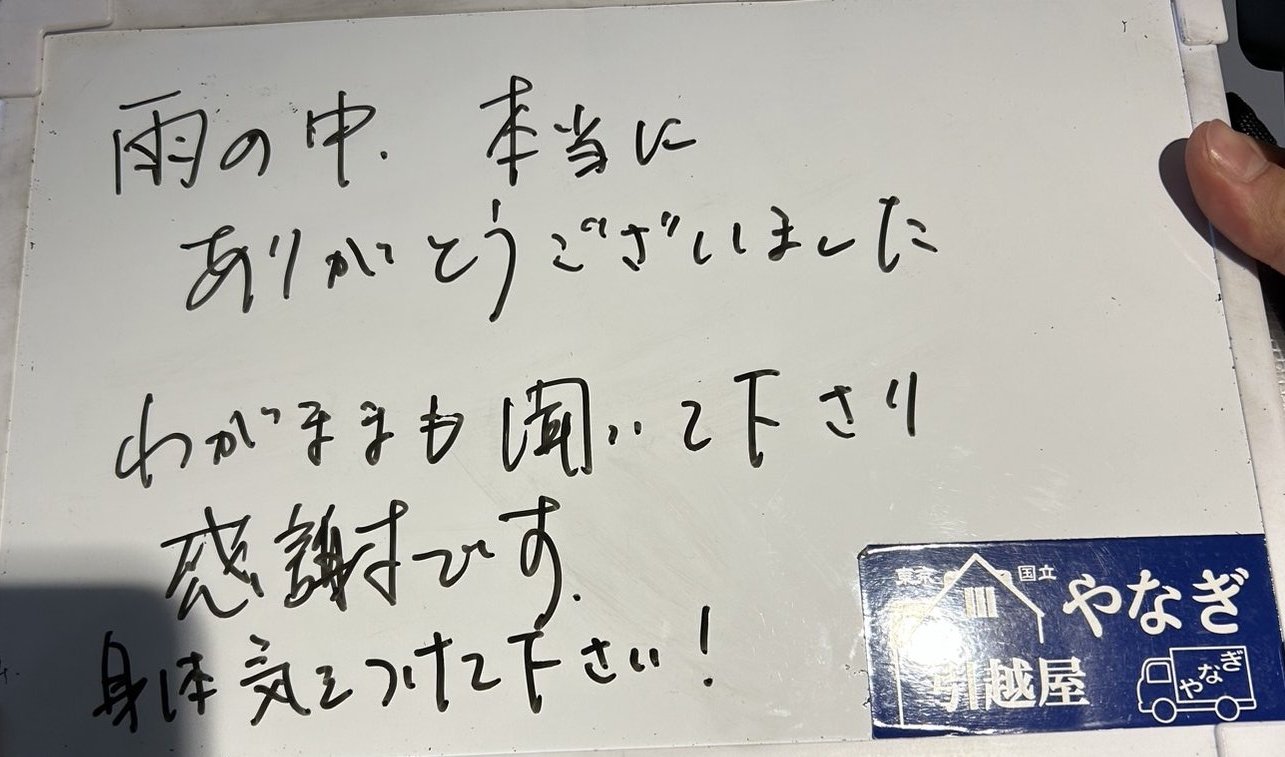 雨の中、本当に
ありがとうございました
わがままも聞いて下さり
感謝です。
身体気をつけて下さい!
東京 国立
やなぎ
引越屋
やなぎ